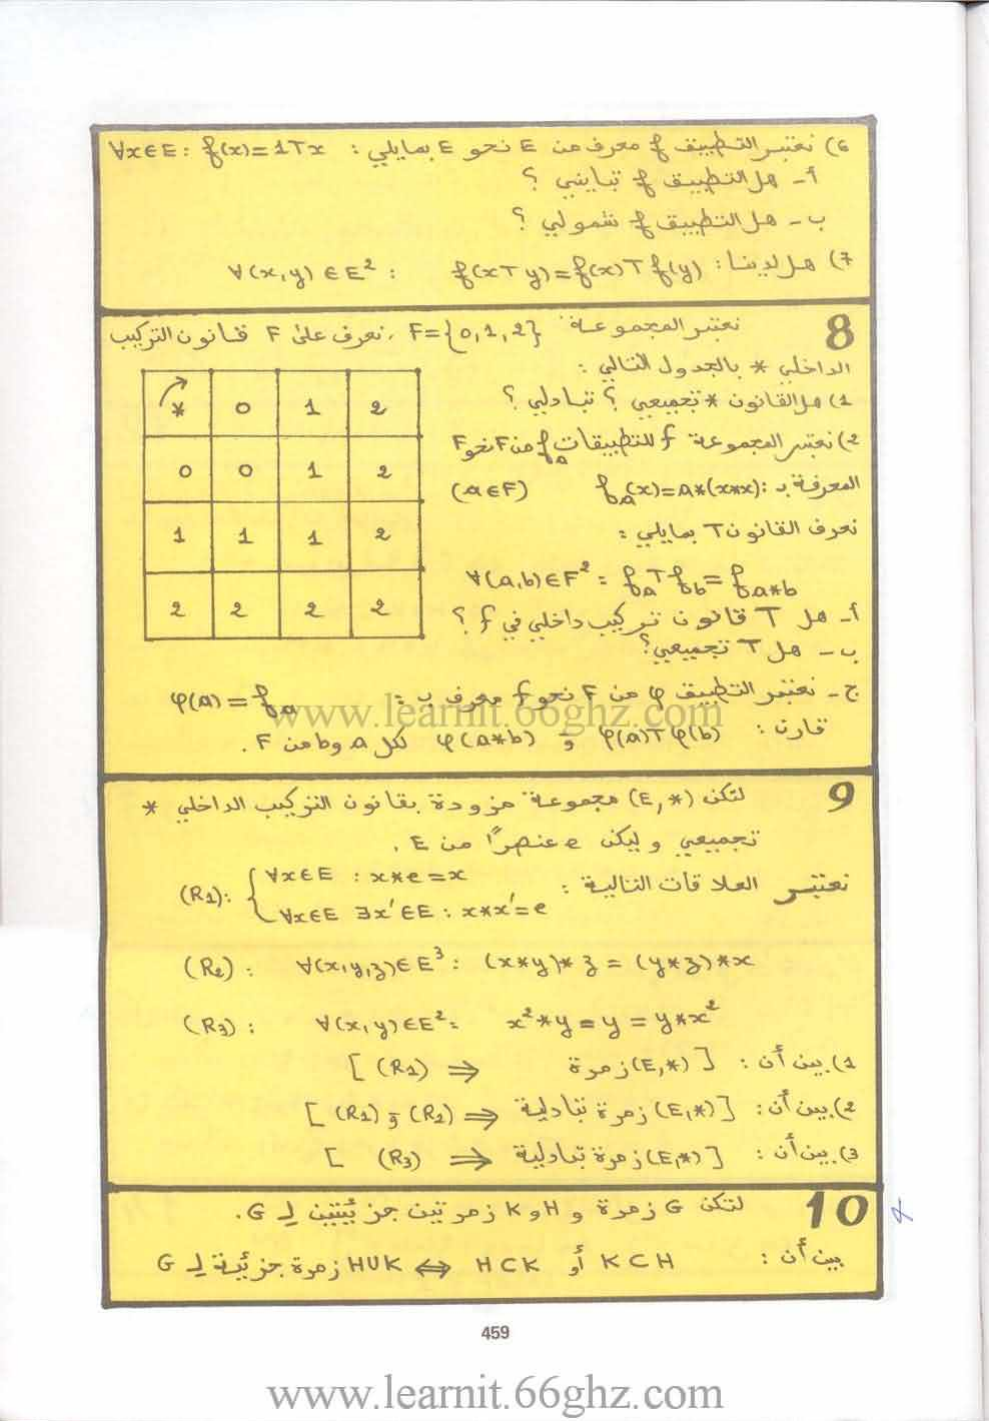 6) نعتبر التطبيق f معرف من E نحو E بمايلي : ∀x∈E : f(x)=1Tx
أ - هل التطبيق f تبايني ؟
ب - هل التطبيق f شمولي ؟
7) هل لدينا : ∀(x,y)∈E² : f(xTy)=f(x)Tf(y)
8 نعتبر المجموعة F={0,1,2} ، نعرف على F قانون التركيب
الداخلي * بالجدول التالي :
* 0 1 2
0 0 1 2
1 1 1 2
2 2 2 2
1) هل القانون * تجميعي ؟ تبادلي ؟
2) نعتبر المجموعة f للتطبيقات f_a من F نحو F
المعرفة ب : f_a(x)=a*(x*x) (a∈F)
نعرف القانون T بمايلي :
∀(a,b)∈F² : f_a T f_b = f_a*b
أ - هل T قانون تركيب داخلي في f ؟
ب - هل T تجميعي ؟
ج - نعتبر التطبيق φ من F نحو f معرف ب : φ(a)=f_a
قارن : φ(a)Tφ(b) و φ(a*b) لكل a و b من F .
www.learnit.66ghz.com
9 لتكن (E,*) مجموعة مزودة بقانون التركيب الداخلي *
تجميعي و ليكن e عنصرًا من E .
نعتبر العلاقات التالية : (R1): { ∀x∈E : x*e=x
∀x∈E ∃x'∈E : x*x'=e
(R2) : ∀(x,y,z)∈E³ : (x*y)*z = (y*z)*x
(R3) : ∀(x,y)∈E² : x²*y = y = y*x²
1) بين أن : [ (E,*) زمرة ⇐ (R1) ]
2) بين أن : [ (E,*) زمرة تبادلية ⇐ (R2) و (R1) ]
3) بين أن : [ (E,*) زمرة تبادلية ⇐ (R3) ]
10 لتكن G زمرة و H و K زمرتين جزئيتين لِ G .
بين أن : K⊂H أو H⊂K ⇔ H∪K زمرة جزئية لِ G
459
www.learnit.66ghz.com